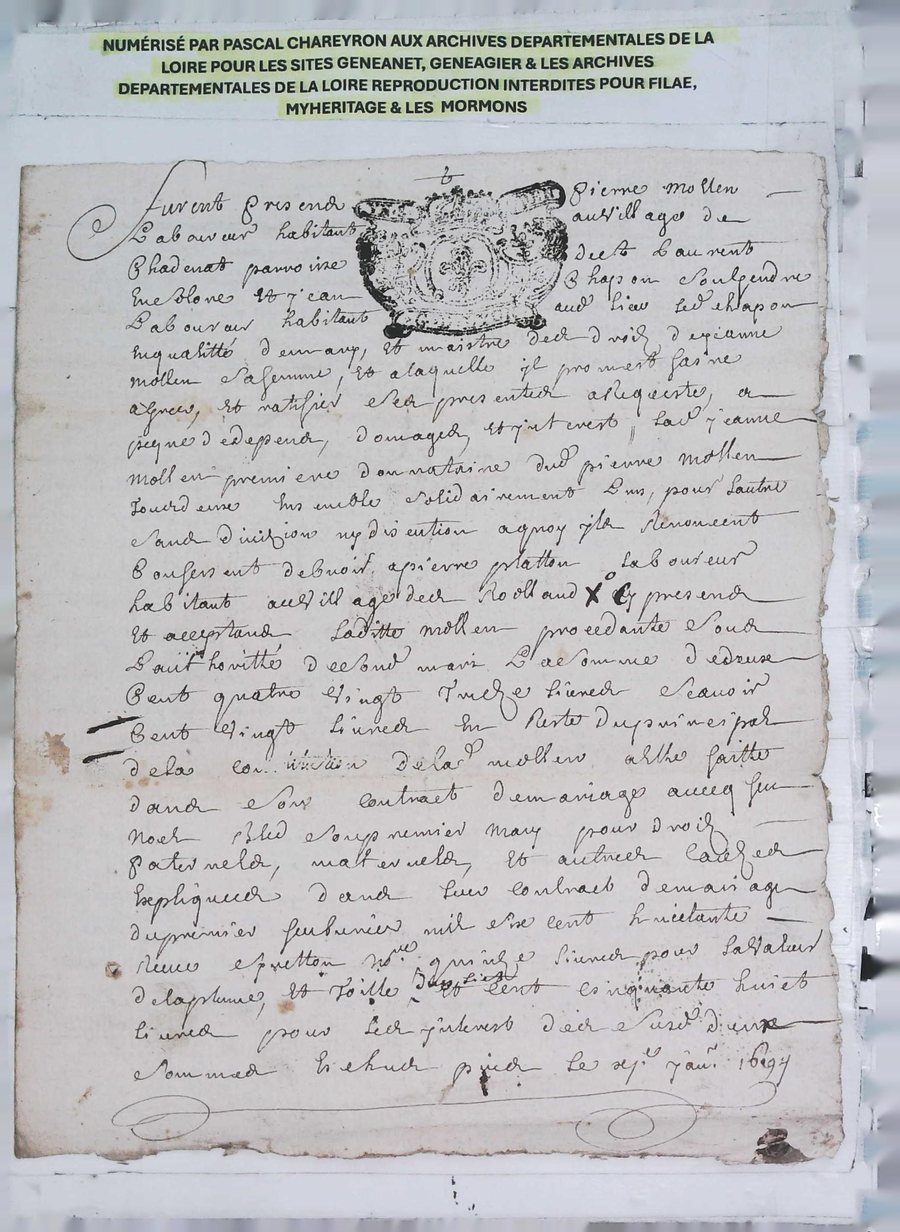 NUMÉRISÉ PAR PASCAL CHAREYRON AUX ARCHIVES DEPARTEMENTALES DE LA
LOIRE POUR LES SITES GENEANET, GENEAGIER & LES ARCHIVES
DEPARTEMENTALES DE LA LOIRE REPRODUCTION INTERDITES POUR FILAE,
MYHERITAGE & LES MORMONS
Furent presens pierre mollen
Laboureur habitant au village de
Chadenat parroisse de st Laurent
et jean Chapon
Laboureur habitant aud lieu chapon
En qualitté de mary, et maistre des droits de jeanne
mollen sa femme, et a laquelle jl promest faire
agreer, et ratiffier ses presentes a requeste, a
peyne de depens, domages, et jnterest, lad jeanne
mollen premiere donnataire dud pierre mollen
Tous deux Ensemble solidairement Lun, pour Lautre
sans division ny a quoy jls Renoncent
Confessent debvoir a pierre platton Laboureur
habitant au village des Rolland cy present
et acceptant Laditte mollen procedante sous
Lauthoritté de sond mary La somme de deux
Cent quatre vingt Treize Livres scavoir
Cent vingt Livres En Reste du principal
de la de lad mollen a elle faitte
dans son contract de mariage avecq feu
Noel son premier mary pour droits
paternels, maternels, et autres causes
Expliquees dans leur contract de mariage
du premier mil six cent huictante
Receu not. quinze Livres pour La valeur
de la plume, et Toille et Cent Cinquante huict
Livres pour Les jnterest des susd deux
sommes Eschus le janv. 1694